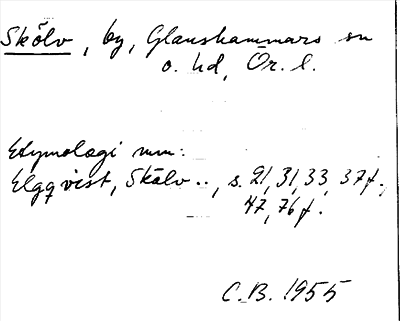 Skölv, by, Glanshammars sn
o. hd, Ör. l.
Etymologi mm:
Elgqvist, Skälv.., s. 21, 31, 33, 37f.,
47, 76f.
C.B. 1955